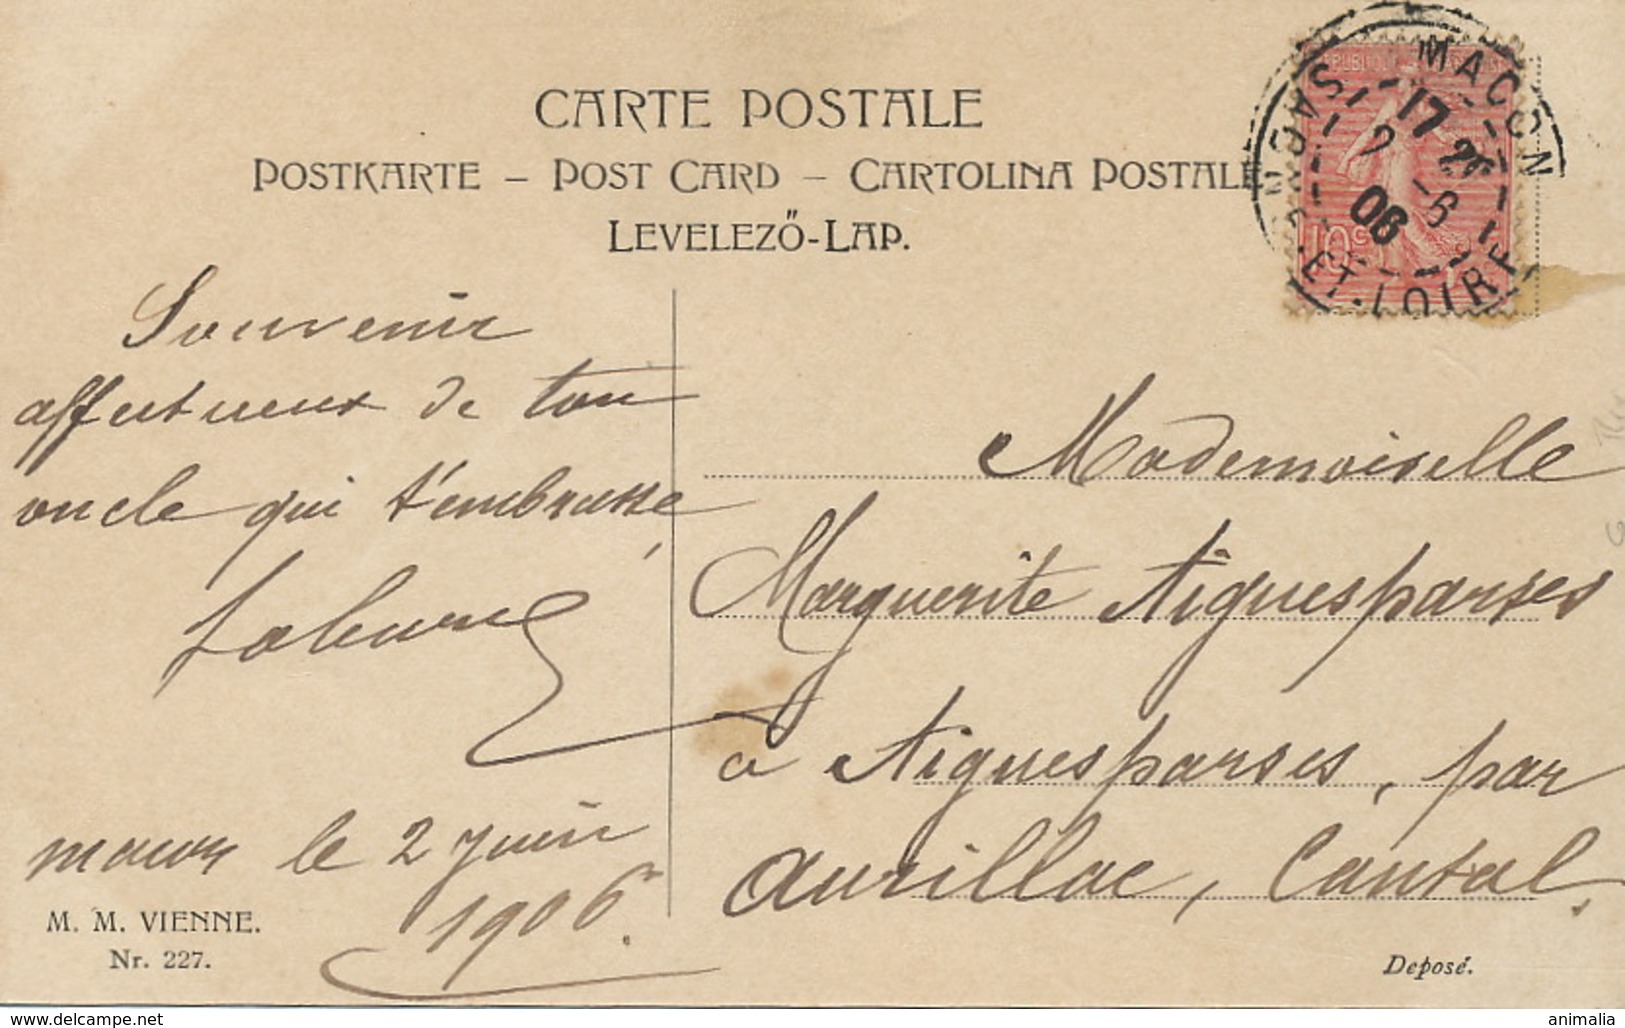 CARTE POSTALE
POSTKARTE – POST CARD – CARTOLINA POSTALE
LEVELEZŐ-LAP.
MACON
17
2 - 6
06
SAONE-ET-LOIRE
10c
Souvenir
affectueux de ton
oncle qui t'embrasse,
Mâcon le 2 Juin
1906.
Mademoiselle
Marguerite Aiguesparses
à Aiguesparses, par
Aurillac, Cantal.
M. M. VIENNE.
Nr. 227.
Deposé.
www.delcampe.net
animalia